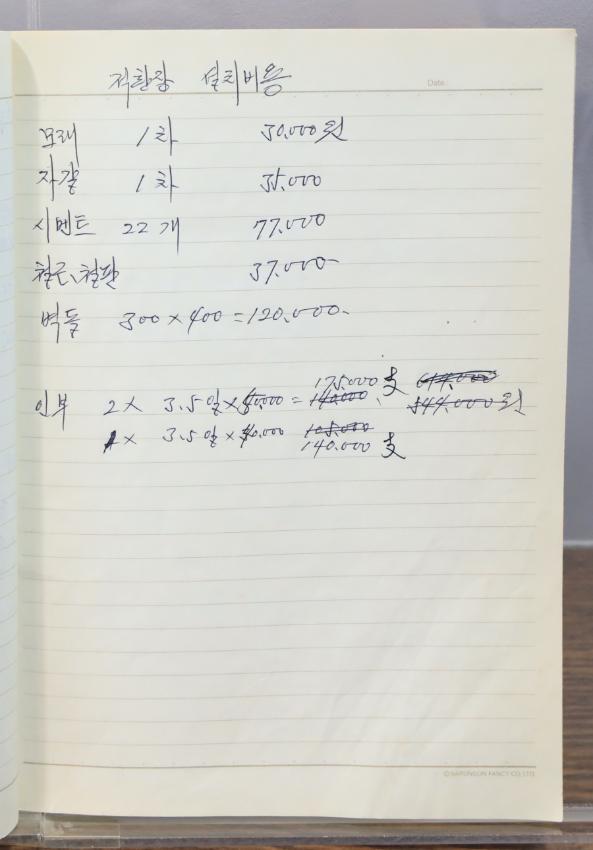 적환장 설치비용
Date.
모래 1차 30,000원
자갈 1차 35,000
시멘트 22개 77,000
철근, 철판 37,000-
벽돌 300×400=120,000-
175,000 支 614,000
인부 2× 3.5일×50,000=140,000. 544,000원
1× 3.5일×40,000 105,000
140,000 支
© BARUNSON FANCY CO., LTD.